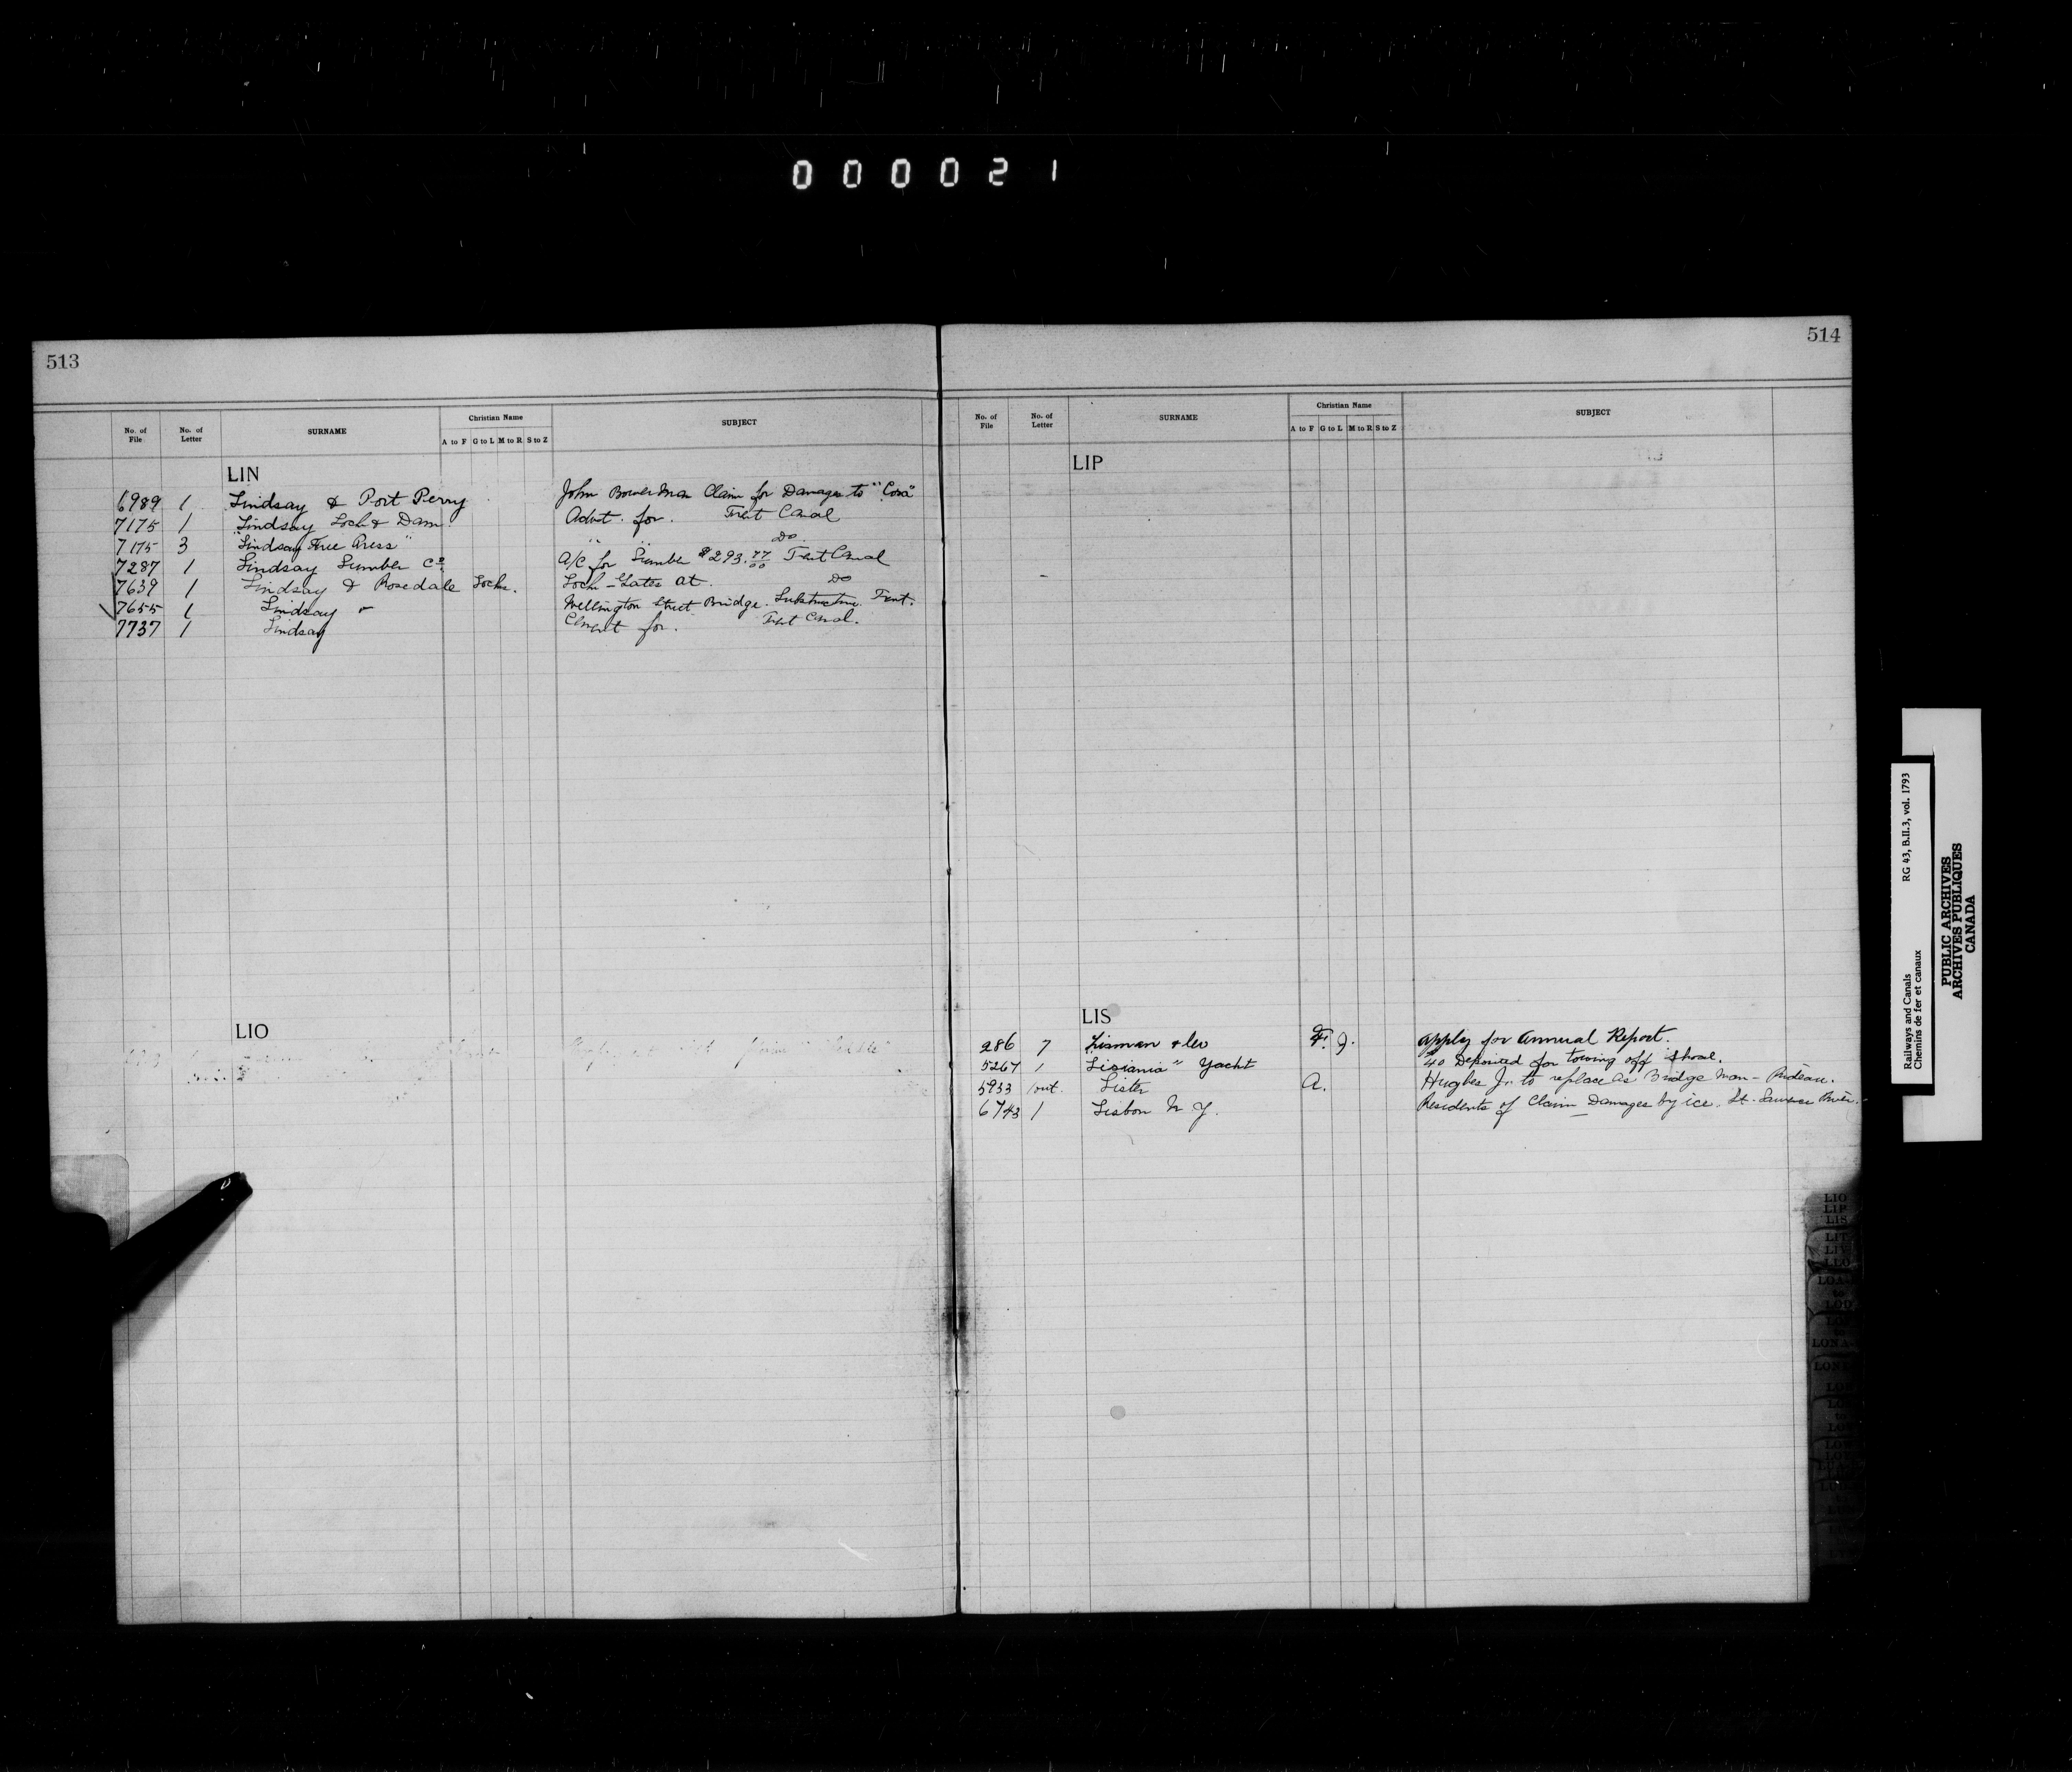 000021
513
No. of File No. of Letter SURNAME Christian Name SUBJECT
A to F G to L M to R S to Z
LIN
6989 1 Lindsay & Port Perry John Bowerman Claim for Damages to "Cora"
7175 1 Lindsay Lock & Dam. Advt. for. Trent Canal
7175 3 "Lindsay Free Press" " " Do.
7287 1 Lindsay Lumber Co. A/C for Lumber $293.77 Trent Canal
7639 1 Lindsay & Rosedale Locks. Lock-Gates at. Do
7655 1 Lindsay " Wellington Street Bridge. Substructure. Trent.
7737 1 Lindsay Cement for. Trent Canal.
LIO
514
No. of File No. of Letter SURNAME Christian Name SUBJECT
A to F G to L M to R S to Z
LIP
LIS
286 7 Lisman & Co F. J. Apply for Annual Report.
5267 1 Lisiania" Yacht 40 Deposited for towing off shoal.
5933 out. Lister A. Hughes Jr. to replace as Bridge Man - Rideau.
6743 1 Lisbon N.Y. Residents of Claim Damages by ice. St. Lawrence River.
LIO
LIP
LIS
LIT
LIV
LLO
LOA
to
LOD
LONA
Railways and Canals RG 43, B.II.3, vol. 1793
Chemins de fer et canaux
PUBLIC ARCHIVES
ARCHIVES PUBLIQUES
CANADA